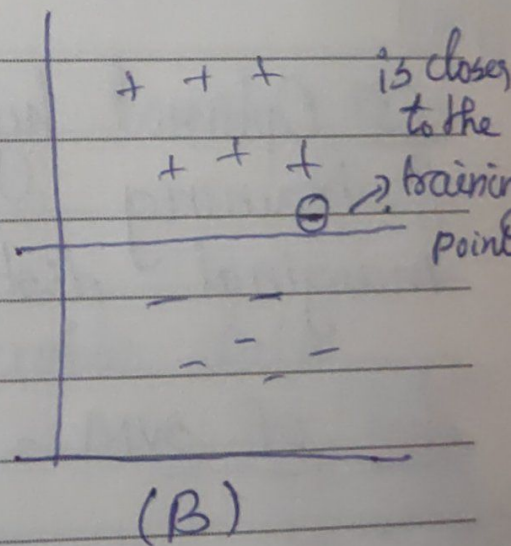 + + +
is closer
to the
+ + +
⊖
training
point
- -
- - -
-
(B)